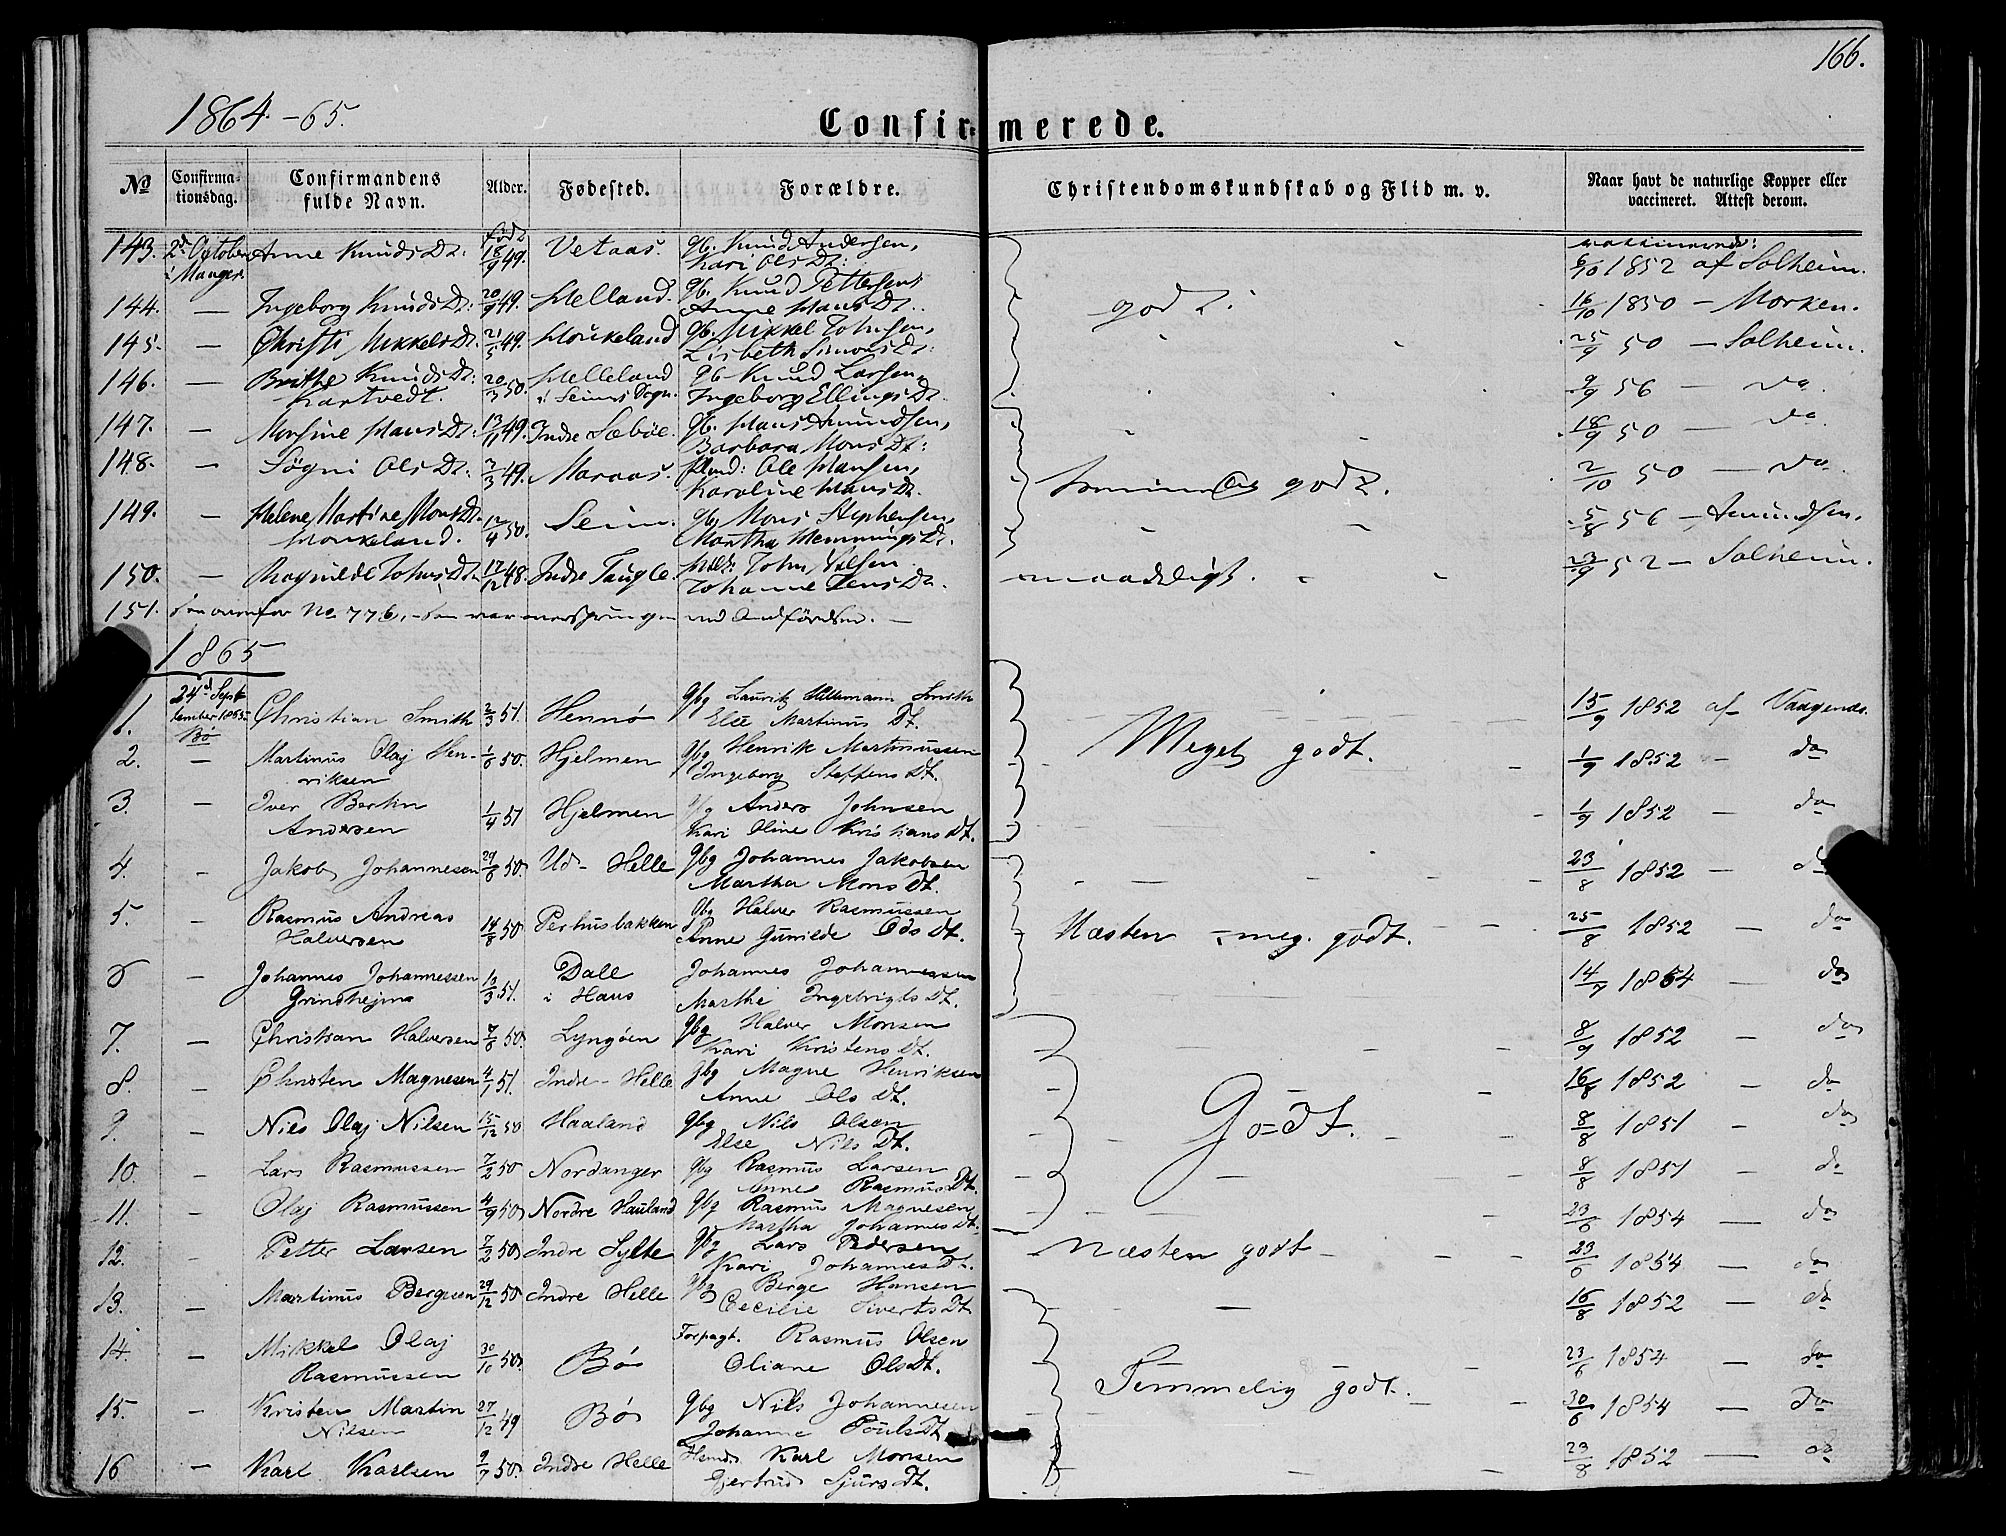 166.
1864-65.
Confirmerede.
No Confirmationsdag. Confirmandens fulde Navn. Alder. Fødested. Forældre. Christendomskundskab og Flid m. v. Naar havt de naturlige Kopper eller vaccineret. Attest derom.
143. 2d October i Manger Anne Knuds Dt. født 18/9 49. Vetaas. Gb. Knud Andersen, Kari Ols Dt: vaccinerede: 6/10 1852 af Solheim.
144. — Ingeborg Knuds Dt: 20/9 49. Helland. Gb. Knud Pettersen, Anne Hans Dt. godt. 16/10 1850 — Morken.
145. — Christi Mikkels Dt. 21/5 49. Houkeland Gb. Mikkel Johnsen, Lisbeth Simons Dt: 25/9 50 — Solheim.
146. — Brithe Knuds Dt: Kartvedt. 20/3 50. Helleland i Seims Sogn. Gb Knud Larsen, Ingeborg Ellings Dt. 9/9 56 — do.
147. — Monsine Hans Dt: 13/11 49. Indre Sæbøe. Gb. Hans Amundsen, Barbara Mons Dt: 18/9 50 — do
148. — Søgni Ols Dt. 7/3 49. Maraas. Pldmd: Ole Hansen, Karoline Hans Dt. temmelig godt. 2/10 50 — do.
149. — Helene Martine Mons Dt. Houkeland. 12/4 50. Seim. Gb. Mons Stephensen, Martha Hemmings Dt. 5/8 56 — Amundsen.
150. — Ragnilde Johns Dt. 17/12 48. Indre Tangle. John Olsen Johanne Jens Dt. maadeligt. 23/9 52 — Solheim.
151. See ovenfor No. 776, som var oversprungen ved Indførelsen. —
1865
1. 24d September 1865 Bø Christian Smith 2/3 51. Hennø Gbg Lauritz Smith Else Martinus Dt. 15/9 1852 af Vaagenes.
2. — Martinus Olaj Henriksen 1/6 50. Hjelmen Gbg Henrik Martinussen Ingeborg Steffens Dt. Meget godt. 1/9 1852 — do
3. — Iver Bertin Andersen 1/4 51 Hjelmen Gbg Anders Johnsen Kari Oline Kristians Dt. 1/9 1852 — do
4. — Jakob Johannesen 29/6 50. Ud-Helle Gbg Johannes Jakobsen Martha Mons Dt. 23/8 1852 — do
5. — Rasmus Andreas Halversen 14/8 50 Perhusbakken Gbg Halver Rasmussen Anne Gunilde Ods Dt. Næsten meg. godt. 25/8 1852 — do
6 — Johannes Johannessen Grindhejm 13/3 51. Dale i Haus Johannes Johannessen Marthe Ingebrigts Dt. 14/7 1854 — do
7. — Christian Halversen 7/6 50. Lyngøen Gbg Halver Monsen Kari Kristens Dt. 8/9 1852 — do
8. — Christen Magnesen 4/1 51. Indre-Helle Gbg Magne Henriksen Anne Ols Dt. 16/8 1852 — do
9. — Nils Olaj Nilsen 15/12 50 Haaland Gbg Nils Olsen Else Nils Dt. Godt. 8/8 1851 — do
10. — Lars Rasmussen 7/2 50 Nordanger Gbg Rasmus Larsen Anne Rasmus Dt. 8/8 1851 — do
11. — Olaj Rasmussen 4/9 50 Nordre Hauland Gbg Rasmus Magnesen Martha Johannes Dt. 23/6 1854 — do
12. — Petter Larsen 7/2 50 Indre Sylte Gbg Lars Pedersen Kari Johannes Dt. Næsten godt 23/6 1854 — do
13. — Martinus Bergesen 29/12 50 Indre Helle Gbg Berge Hansen Cecilie Siverts Dt 16/8 1852 — do
14. — Mikkel Olaj Rasmussen 30/10 50. Bø Forpagt. Rasmus Olsen Oliane Ols Dt. 23/6 1854 — do
15. — Kristen Martin Nilsen 27/12 49 Bø Gbg Nils Johannesen Johanne Pouls Dt Temmelig godt. 30/6 1854 — do
16 — Karl Karlsen 9/7 50. Indre Helle Karl Monsen Gjertrud Sjurs Dt. 23/8 1852 — do